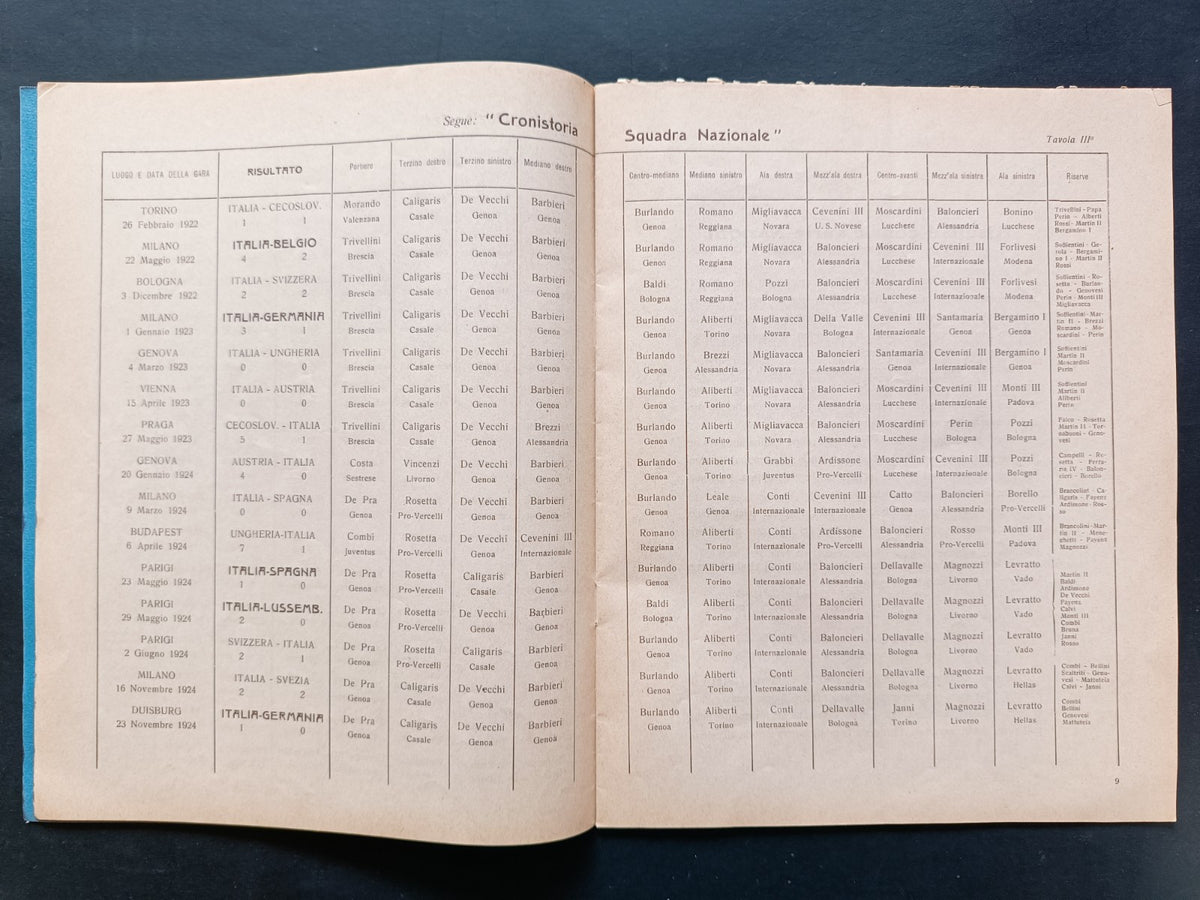 Segne: "Cronistoria Squadra Nazionale" Tavola IIIª
LUOGO E DATA DELLA GARA RISULTATO Portiere Terzino destro Terzino sinistro Mediano destro Centro-mediano Mediano sinistro Ala destra Mezz'ala destra Centro-avanti Mezz'ala sinistra Ala sinistra Riserve
TORINO ITALIA - CECOSLOV. Morando Caligaris De Vecchi Barbieri Burlando Romano Migliavacca Cevenini III Moscardini Baloncieri Bonino
26 Febbraio 1922 1 1 Valenzana Casale Genoa Genoa Genoa Reggiana Novara U. S. Novese Lucchese Alessandria Lucchese
Trivellini - Papa
Perin - Aliberti
Rossi - Martin II
Bergamino I
MILANO ITALIA-BELGIO Trivellini Caligaris De Vecchi Barbieri Burlando Romano Migliavacca Baloncieri Moscardini Cevenini III Forlivesi
22 Maggio 1922 4 2 Brescia Casale Genoa Genoa Genoa Reggiana Novara Alessandria Lucchese Internazionale Modena
Soffientini - Ge-
rola - Bergami-
no I - Martin II
Rossi
BOLOGNA ITALIA - SVIZZERA Trivellini Caligaris De Vecchi Barbieri Baldi Romano Pozzi Baloncieri Moscardini Cevenini III Forlivesi
3 Dicembre 1922 2 2 Brescia Casale Genoa Genoa Bologna Reggiana Bologna Alessandria Lucchese Internazionale Modena
Soffientini - Ro-
setta - Burlan-
do - Genovesi
Perin - Monti III
Migliavacca
MILANO ITALIA-GERMANIA Trivellini Caligaris De Vecchi Barbieri Burlando Aliberti Migliavacca Della Valle Cevenini III Santamaria Bergamino I
1 Gennaio 1923 3 1 Brescia Casale Genoa Genoa Genoa Torino Novara Bologna Internazionale Genoa Genoa
Soffientini - Mar-
tin II - Brezzi
Romano - Mo-
scardini - Perin
GENOVA ITALIA - UNGHERIA Trivellini Caligaris De Vecchi Barbieri Burlando Brezzi Migliavacca Baloncieri Santamaria Cevenini III Bergamino I
4 Marzo 1923 0 0 Brescia Casale Genoa Genoa Genoa Alessandria Novara Alessandria Genoa Internazionale Genoa
Soffientini
Martin II
Moscardini
Perin
VIENNA ITALIA - AUSTRIA Trivellini Caligaris De Vecchi Barbieri Burlando Aliberti Migliavacca Baloncieri Moscardini Cevenini III Monti III
15 Aprile 1923 0 0 Brescia Casale Genoa Genoa Genoa Torino Novara Alessandria Lucchese Internazionale Padova
Soffientini
Martin II
Aliberti
Perin
PRAGA CECOSLOV. - ITALIA Trivellini Caligaris De Vecchi Brezzi Burlando Aliberti Migliavacca Baloncieri Moscardini Perin Pozzi
27 Maggio 1923 5 1 Brescia Casale Genoa Alessandria Genoa Torino Novara Alessandria Lucchese Bologna Bologna
Feico - Rosetta
Martin II - Tor-
nabuoni - Geno-
vesi
GENOVA AUSTRIA - ITALIA Costa Vincenzi De Vecchi Barbieri Burlando Aliberti Grabbi Ardissone Moscardini Cevenini III Pozzi
20 Gennaio 1924 4 0 Sestrese Livorno Genoa Genoa Genoa Torino Juventus Pro-Vercelli Lucchese Internazionale Bologna
Campelli - Ro-
setta - Ferra-
ris IV - Balon-
cieri - Borello
MILANO ITALIA - SPAGNA De Pra Rosetta De Vecchi Barbieri Burlando Leale Conti Cevenini III Catto Baloncieri Borello
9 Marzo 1924 0 0 Genoa Pro-Vercelli Genoa Genoa Genoa Genoa Internazionale Internazionale Genoa Alessandria Pro-Vercelli
Ardissone - Ros-
so
BUDAPEST UNGHERIA-ITALIA Combi Rosetta De Vecchi Cevenini III Romano Aliberti Conti Ardissone Baloncieri Rosso Monti III
6 Aprile 1924 7 1 Juventus Pro-Vercelli Genoa Internazionale Reggiana Torino Internazionale Pro-Vercelli Alessandria Pro-Vercelli Padova
Brancolini-Mar-
tin II - Mene-
ghetti - Payanti
Magnozzi
PARIGI ITALIA-SPAGNA De Pra Rosetta Caligaris Barbieri Burlando Aliberti Conti Baloncieri Dellavalle Magnozzi Levratto
23 Maggio 1924 1 0 Genoa Pro-Vercelli Casale Genoa Genoa Torino Internazionale Alessandria Bologna Livorno Vado
PARIGI ITALIA-LUSSEMB. De Pra Rosetta De Vecchi Barbieri Baldi Aliberti Conti Baloncieri Dellavalle Magnozzi Levratto
29 Maggio 1924 2 0 Genoa Pro-Vercelli Genoa Genoa Bologna Torino Internazionale Alessandria Bologna Livorno Vado
PARIGI SVIZZERA - ITALIA De Pra Rosetta Caligaris Barbieri Burlando Aliberti Conti Baloncieri Dellavalle Magnozzi Levratto
2 Giugno 1924 2 1 Genoa Pro-Vercelli Casale Genoa Genoa Torino Internazionale Alessandria Bologna Livorno Vado
Martin II
Baldi
Ardissone
De Vecchi
Payera
Calvi
Monti III
Combi
Bruna
Janni
Rosso
MILANO ITALIA - SVEZIA De Pra Caligaris De Vecchi Barbieri Burlando Aliberti Conti Baloncieri Dellavalle Magnozzi Levratto
16 Novembre 1924 2 2 Genoa Casale Genoa Genoa Genoa Torino Internazionale Alessandria Bologna Livorno Hellas
Combi - Bellini
Scaltriti - Geno-
vesi - Mattuteia
Calvi - Janni
DUISBURG ITALIA-GERMANIA De Pra Caligaris De Vecchi Barbieri Burlando Aliberti Conti Dellavalle Janni Magnozzi Levratto
23 Novembre 1924 1 0 Genoa Casale Genoa Genoa Genoa Torino Internazionale Bologna Torino Livorno Hellas
Combi
Bellini
Genovesi
Mattuteia
9